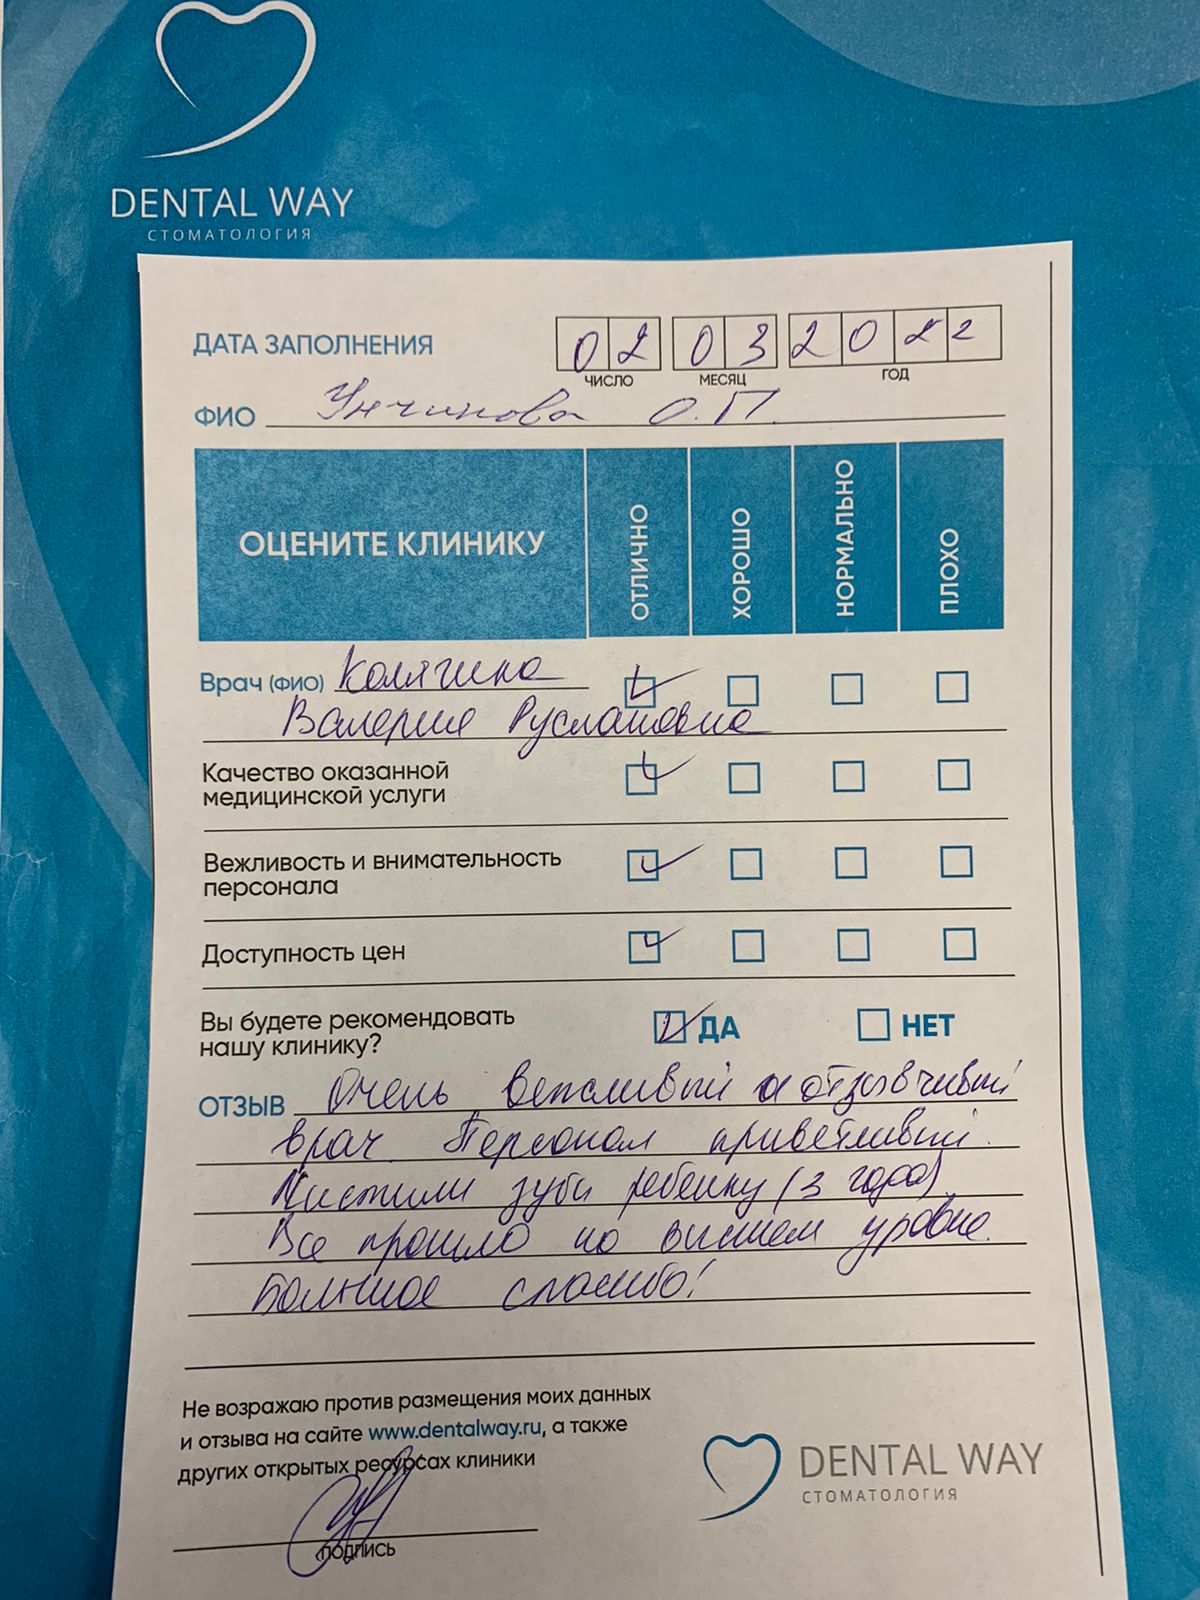 DENTAL WAY
СТОМАТОЛОГИЯ
ДАТА ЗАПОЛНЕНИЯ 02 03 2022
ЧИСЛО МЕСЯЦ ГОД
ФИО Унчинова О.П.
ОЦЕНИТЕ КЛИНИКУ ОТЛИЧНО ХОРОШО НОРМАЛЬНО ПЛОХО
Врач (ФИО) Колягина
Валерия Руслановна
Качество оказанной
медицинской услуги
Вежливость и внимательность
персонала
Доступность цен
Вы будете рекомендовать
нашу клинику? ДА НЕТ
ОТЗЫВ Очень вежливый и отзывчивый
врач. Персонал приветливый.
Чистили зубы ребенку (3 года).
Все прошло на высшем уровне.
Большое спасибо!
Не возражаю против размещения моих данных
и отзыва на сайте www.dentalway.ru, а также
других открытых ресурсах клиники
подпись
DENTAL WAY
СТОМАТОЛОГИЯ